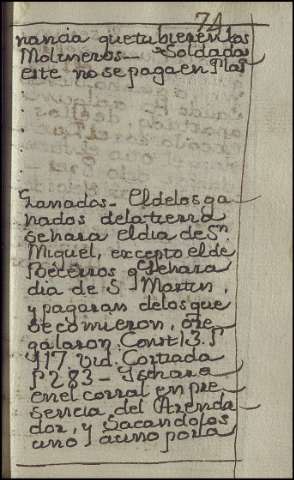 74
nancia que tubieren los
Molineros — Soldadas
este no se paga en Plas
Ganados - El de los ga
nados de la tierra
se hara el dia de Sn.
Miguel, excepto el de
Becerros q Se hara
dia de S. Martin,
y pagaran de los que
se comieron, o re
galaron. Const. 13. P
117. vid. Cortiada
P 283 - I se hara
en el corral en pre
sencia del Arrenda
dor, y Sacandolos
uno a uno por la